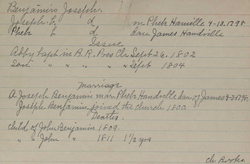 Benjamin Joseph
Joseph L d m Phebe Hanville 4-10.1798
Phebe d Dau James Handville
Issue
Abby bapt in R.P. Ch Sept 26, 1802
Son " " " " Sept 1804
Marriage
A Joseph Benjamin mar. Phebe Handville dau of James
Joseph Benjamin joined the Church 1800
Deaths
Child of John Benjamin 1809
" " John " 1811 1½ yrs
Ch Books